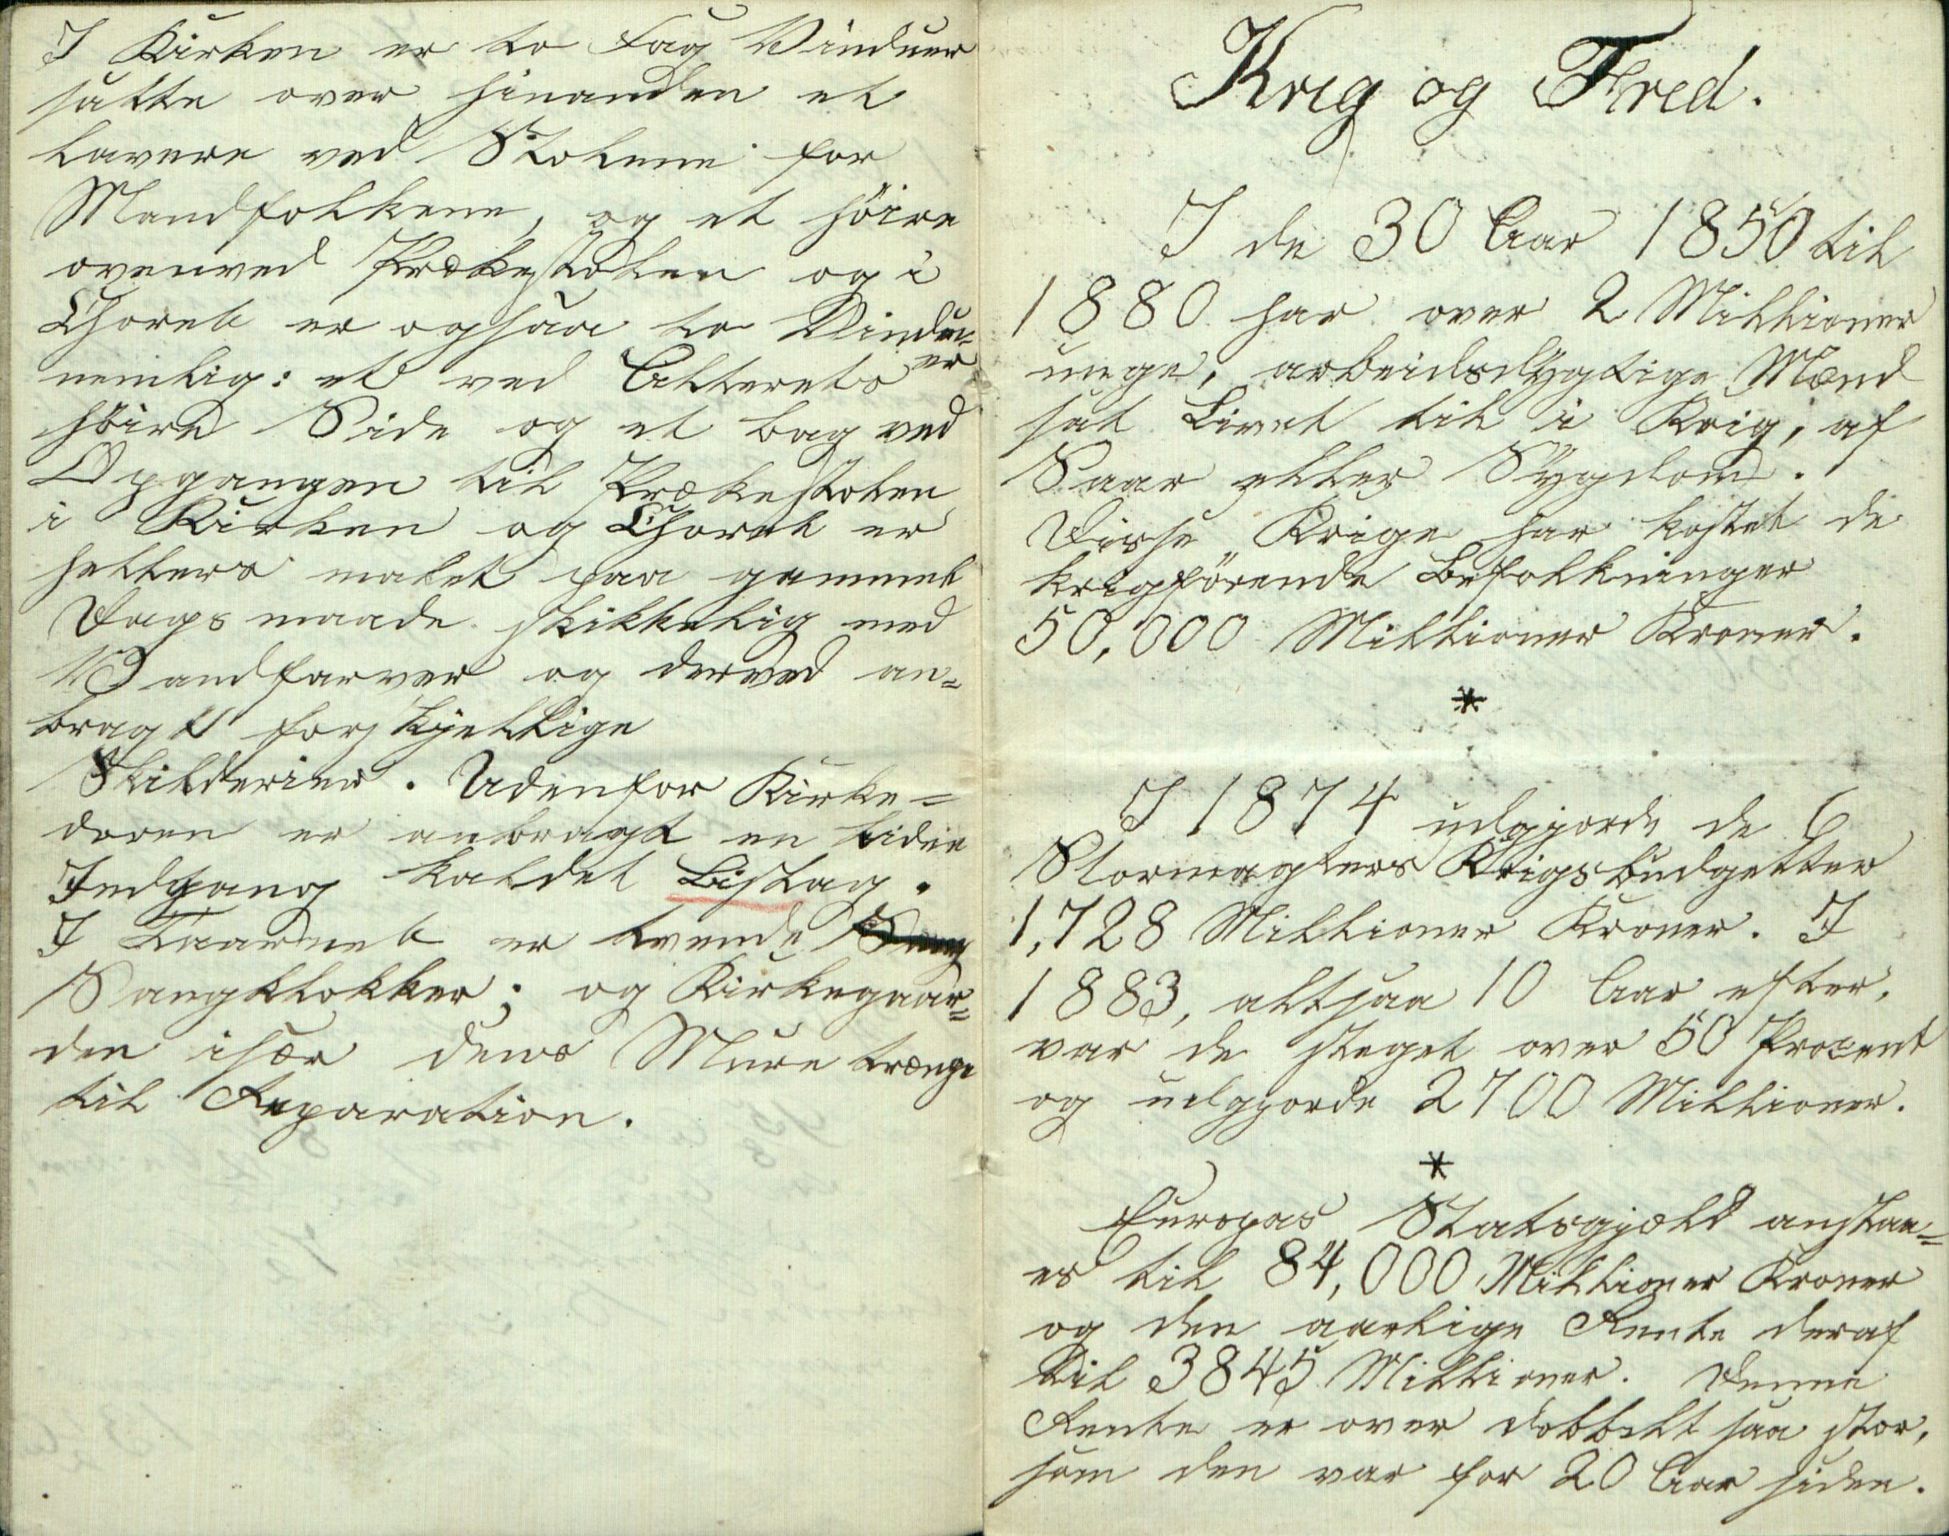 I Kirken er to Fag Vinduer
satte over hinanden et
lavere ved Stolene for
Mandfolkene, og et höire
ovenved Prækestolen og i
Choret er ogsaa to Vindu=
er
nemlig: et ved Alterets
höire Side og et bag ved
Opgangen til Prækestolen
i Kirken og Choret er
hellers malet paa gammel
Dags maade skikkelig med
Vandfarver og derved an=
bragt forskjellige
Skilderier. Udenfor Kirke=
doren er anbragt en liden
Indgang kaldet Bislag.
I Taarnet er tvende
Sangklokker; og Kirkegaar=
den især dens Mure trænge
til Reparation.
Krig og Fred.
I de 30 Aar 1850 til
1880 har over 2 Millioner
unge, arbeidsdygtige Mænd
sat Livet til i Krig, af
Saar eller Sygdom.
Disse Krige har kostet de
krigförende Befolkninger
50,000 Millioner Kroner.
*
I 1874 udgjorde de 6
Stormagters Krigsbudgetter
1,728 Millioner Kroner. I
1883, altsaa 10 Aar efter,
var de steget over 50 Procent
og udgjorde 2700 Millioner.
*
Europas Statsgjæld anslaa=
es til 84,000 Millioner Kroner
og den aarlige Rente deraf
til 3845 Millioner. Denne
Rente er over dobbelt saa stor,
som den var for 20 Aar siden.